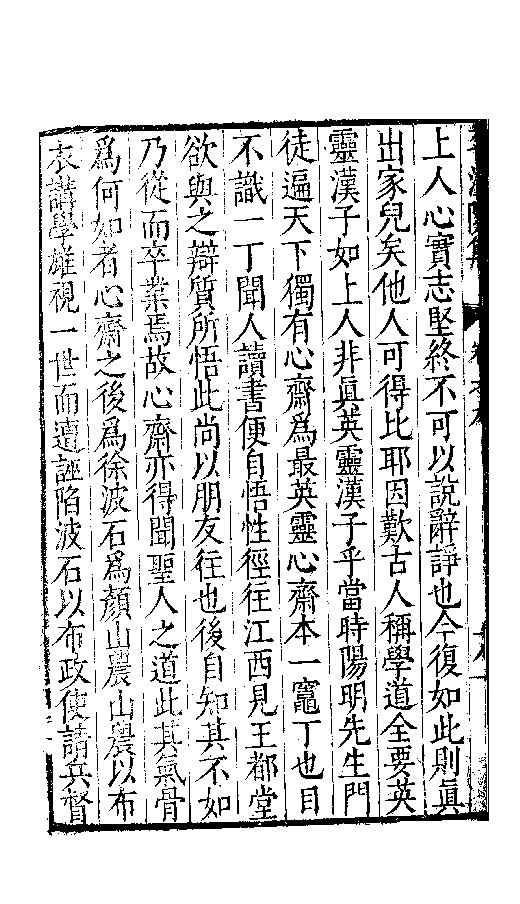 上人心實志堅終不可以說辭諍也今復如此則真
出家兒矣他人可得比耶因歎古人稱學道全要英
靈漢子如上人非眞英靈漢子乎當時陽明先生門
徒遍天下獨有心齋爲最英靈心齋本一竈丁也目
不識一丁聞人讀書便自悟性徑往江西見王都堂
欲與之辯質所悟此尚以朋友往也後自知其不如
乃從而卒業焉故心齋亦得聞聖人之道此其氣骨
爲何如者心齋之後爲徐波石爲顏山農山農以布
衣講學雄視一世而遭誣陷波石以布政使請兵督